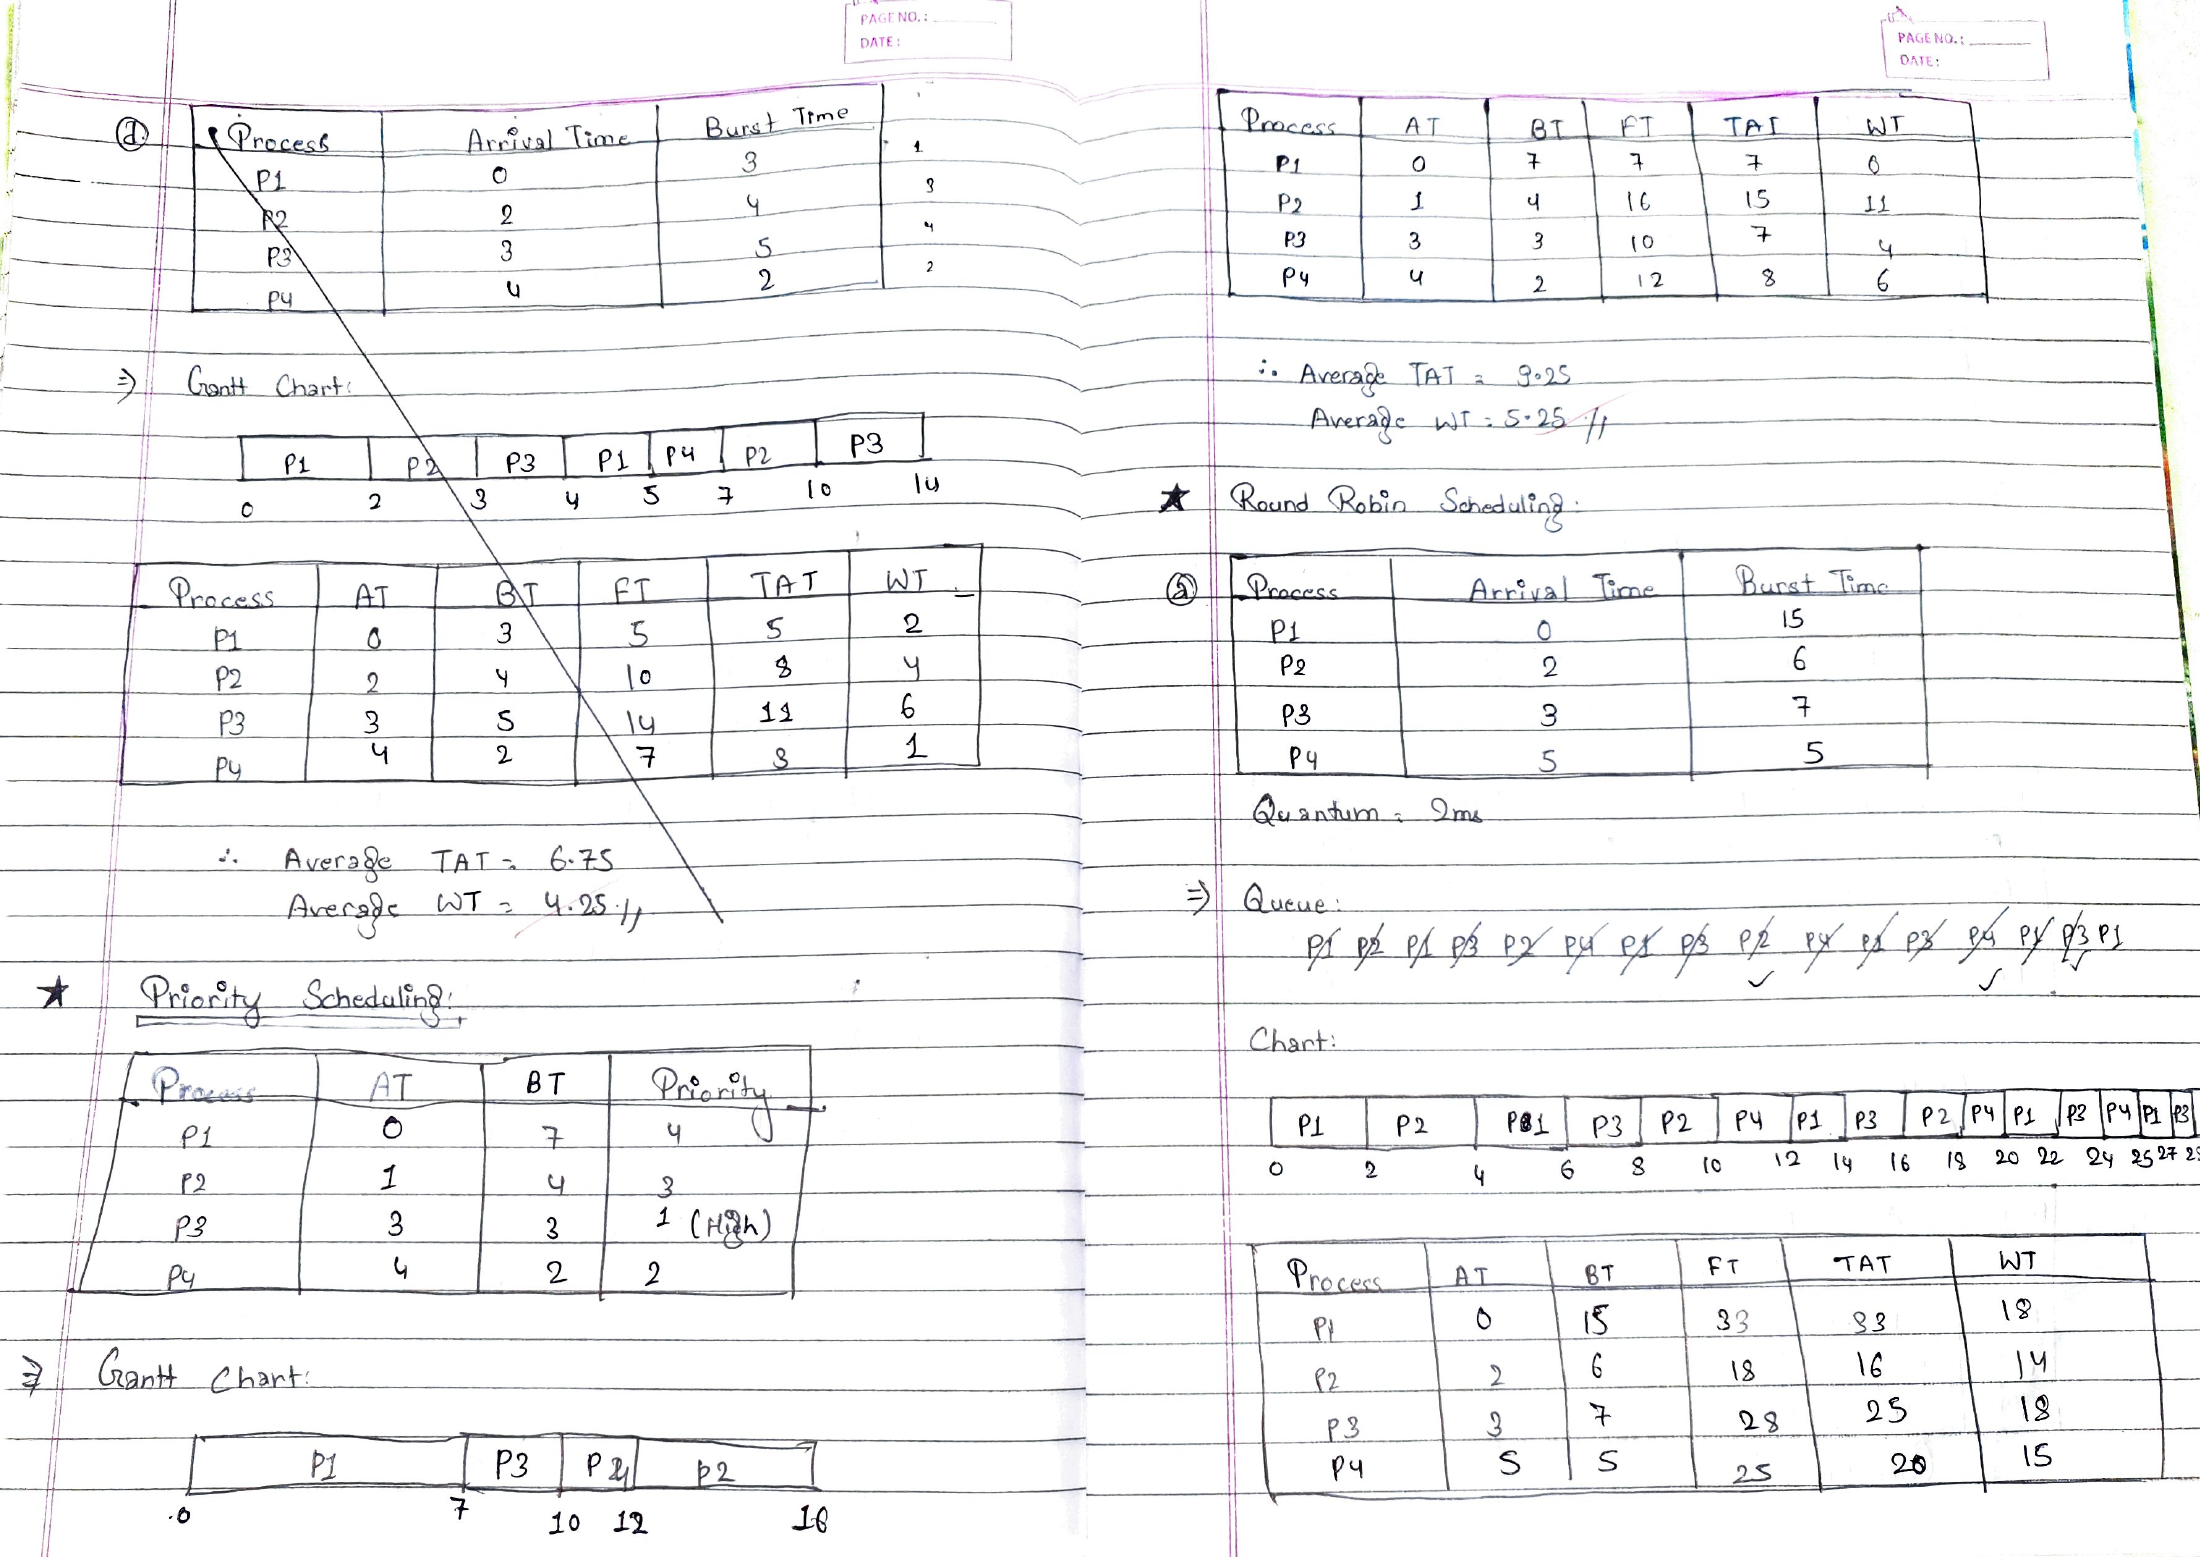 PAGE NO.:
DATE:
(d) Process Arrival Time Burst Time
P1 0 3 1
P2 2 4 3
P3 3 5 4
P4 4 2 2
⇒ Gantt Chart:
P1 P2 P3 P1 P4 P2 P3
0 2 3 4 5 7 10 14
Process AT BT FT TAT WT
P1 0 3 5 5 2
P2 2 4 10 8 4
P3 3 5 14 11 6
P4 4 2 7 3 1
∴ Average TAT = 6.75
Average WT = 4.25 //
★ Priority Scheduling:
Process AT BT Priority
P1 0 7 4
P2 1 4 3
P3 3 3 1 (High)
P4 4 2 2
⇒ Gantt Chart:
P1 P3 P4 P2
0 7 10 12 16
PAGE NO.:
DATE:
Process AT BT FT TAT WT
P1 0 7 7 7 0
P2 1 4 16 15 11
P3 3 3 10 7 4
P4 4 2 12 8 6
∴ Average TAT = 9.25
Average WT = 5.25 //
★ Round Robin Scheduling:
(a) Process Arrival Time Burst Time
P1 0 15
P2 2 6
P3 3 7
P4 5 5
Quantum = 2ms
⇒ Queue:
P1 P2 P1 P3 P2 P4 P1 P3 P2 P4 P1 P3 P4 P1 P3 P1
Chart:
P1 P2 P1 P3 P2 P4 P1 P3 P2 P4 P1 P3 P4 P1 P3
0 2 4 6 8 10 12 14 16 18 20 22 24 25 27 28
Process AT BT FT TAT WT
P1 0 15 33 33 18
P2 2 6 18 16 14
P3 3 7 28 25 18
P4 5 5 25 20 15